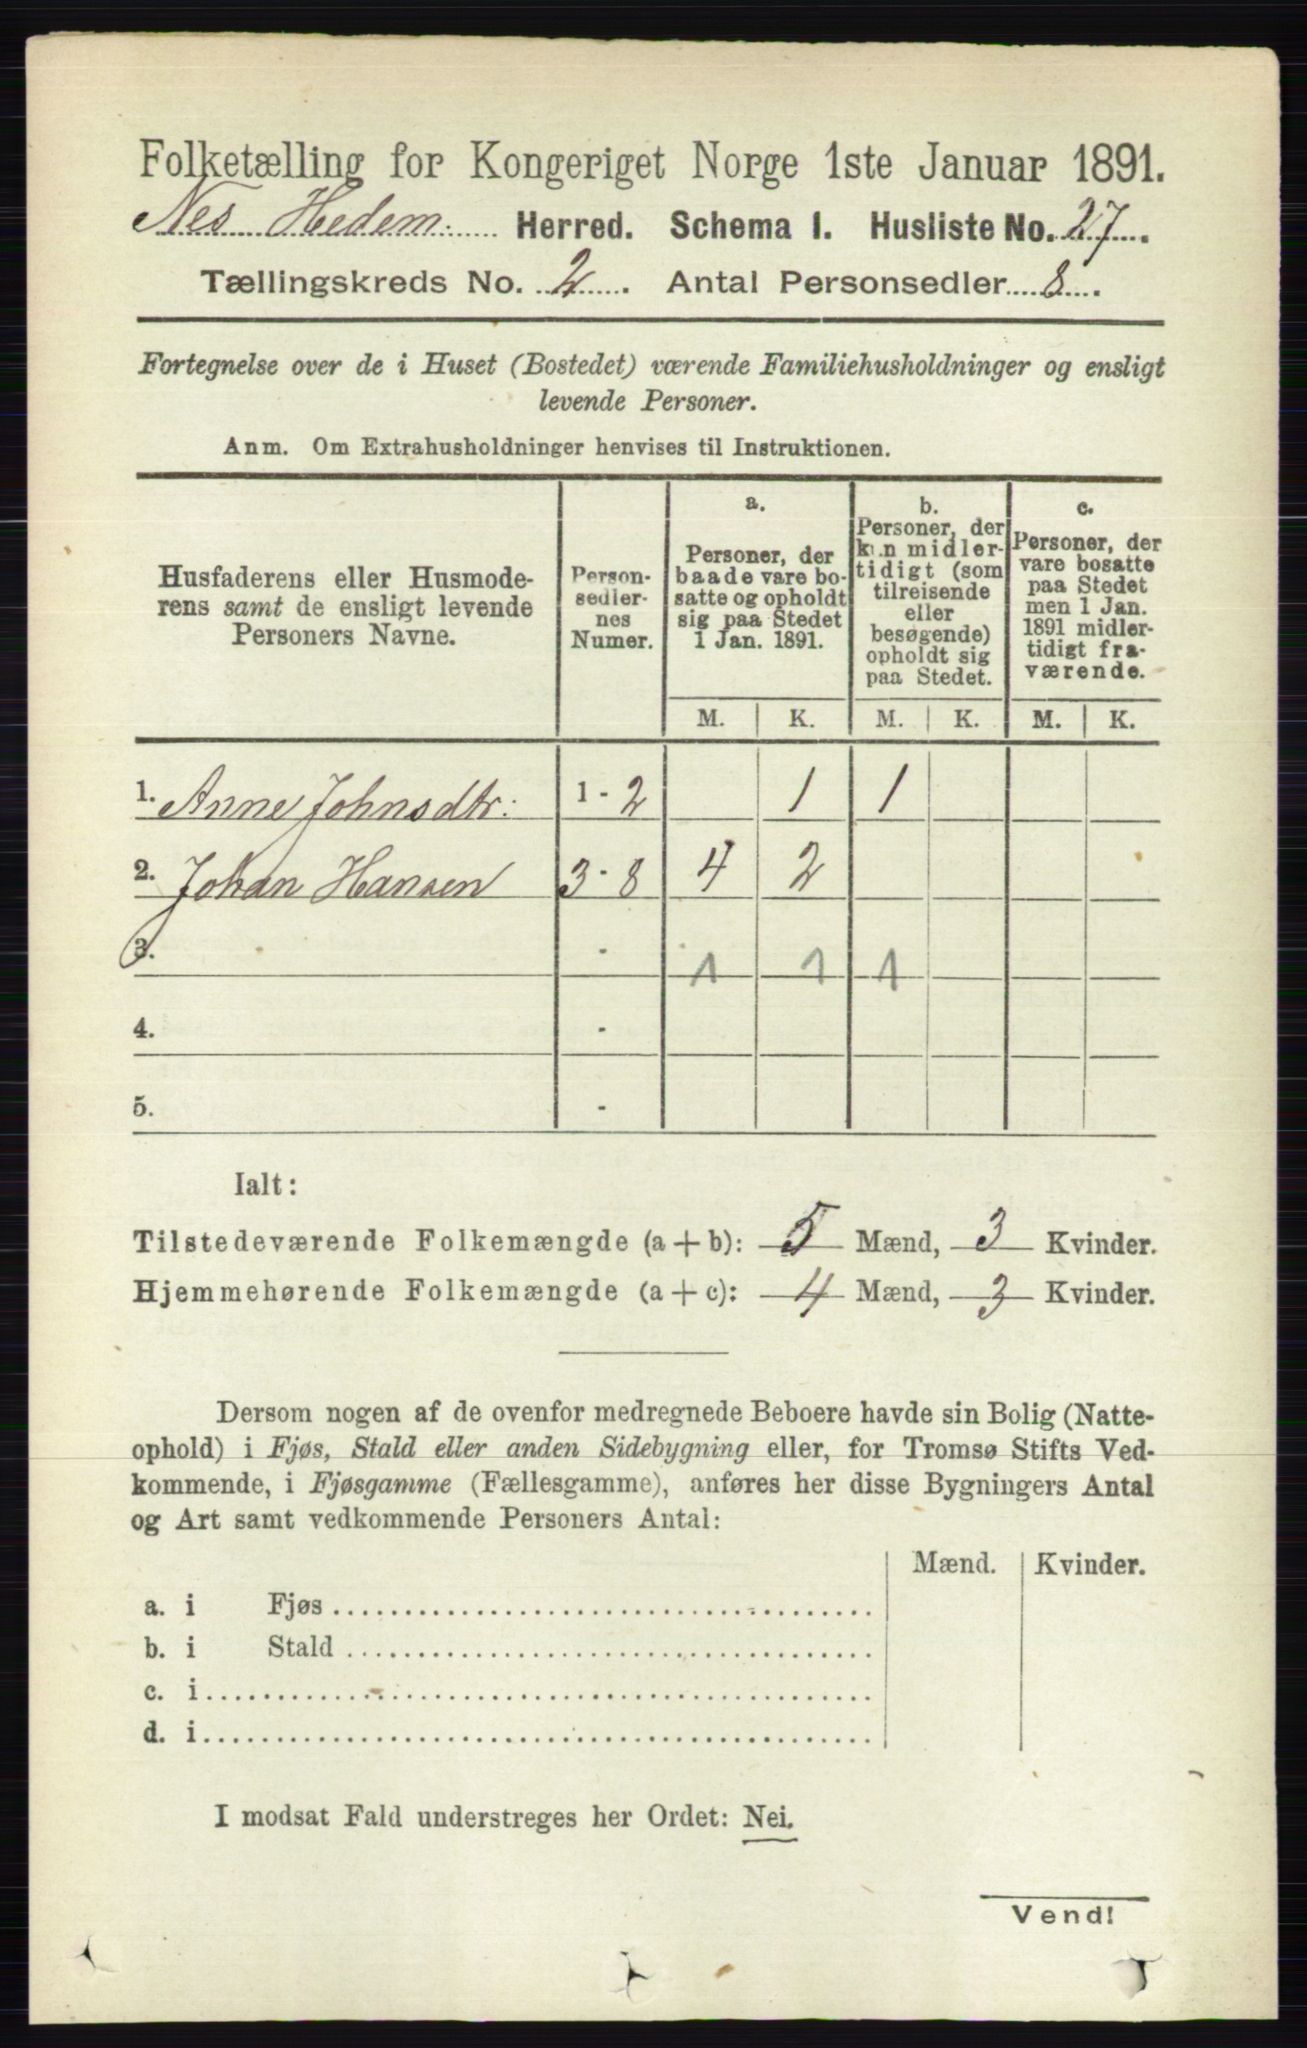 Folketælling for Kongeriget Norge 1ste Januar 1891.
Nes Hedem. Herred. Schema I. Husliste No. 27.
Tællingskreds No. 2. Antal Personsedler 8.
Fortegnelse over de i Huset (Bostedet) værende Familiehusholdninger og ensligt
levende Personer.
Anm. Om Extrahusholdninger henvises til Instruktionen.
Husfaderens eller Husmode-
rens samt de ensligt levende
Personers Navne.
Person-
sedler-
nes
Numer.
a.
Personer, der
baade vare bo-
satte og opholdt
sig paa Stedet
1 Jan. 1891.
b.
Personer, der
kun midler-
tidigt (som
tilreisende
eller
besøgende)
opholdt sig
paa Stedet.
c.
Personer, der
vare bosatte
paa Stedet
men 1 Jan.
1891 midler-
tidigt fra-
værende.
M. K. M. K. M. K.
1. Anne Johnsdtr: 1 - 2 1 1
2. Johan Hansen 3 - 8 4 2
3. - 1 1 1
4. -
5. -
Ialt:
Tilstedeværende Folkemængde (a + b): 5 Mænd, 3 Kvinder.
Hjemmehørende Folkemængde (a + c): 4 Mænd, 3 Kvinder.
Dersom nogen af de ovenfor medregnede Beboere havde sin Bolig (Natte-
ophold) i Fjøs, Stald eller anden Sidebygning eller, for Tromsø Stifts Ved-
kommende, i Fjøsgamme (Fællesgamme), anføres her disse Bygningers Antal
og Art samt vedkommende Personers Antal:
Mænd. Kvinder.
a. i Fjøs
b. i Stald
c. i
d. i
I modsat Fald understreges her Ordet: Nei.
Vend!